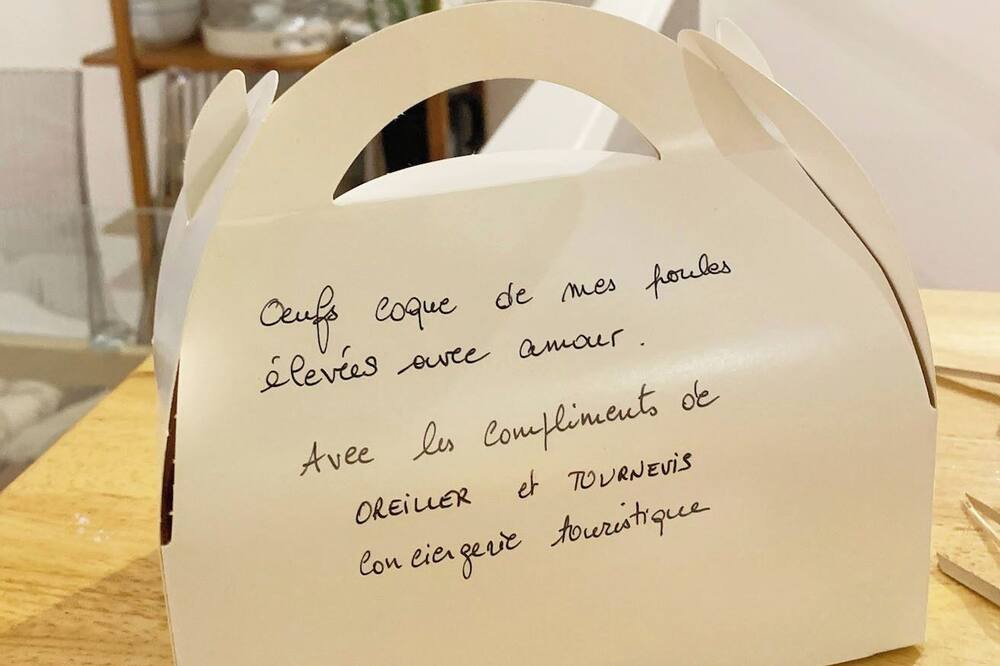 Oeufs coque de mes poules
élevées avec amour.
Avec les compliments de
OREILLER et TOURNEVIS
Conciergerie touristique